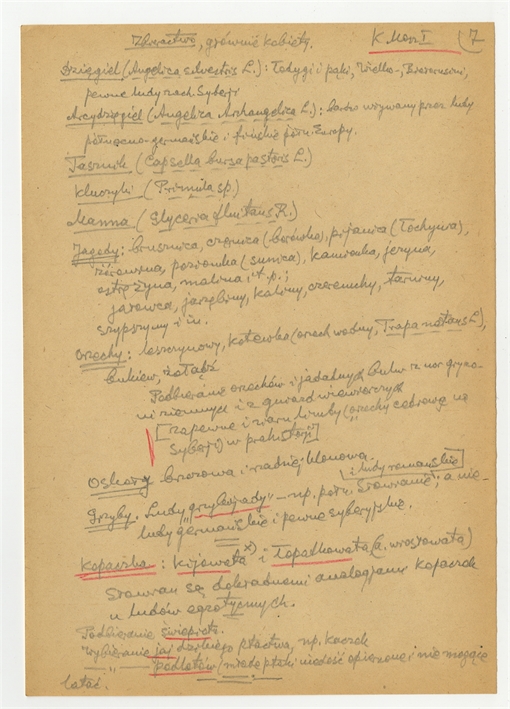 Zbieractwo, głównie kobiety. K. Mosz I 7
Dzięgiel (Angelica silvestris L.): łodygi i pąki, Wielko-, Białorusini,
pewne ludy zach. Syberji
Arcydzięgiel (Angelica Archangelica L.): bardzo używany przez ludy
północno-germańskie i fińskie półn. Europy.
Tasznik (Capsella bursa pastoris L.)
Kluczyki (Primula sp.)
Manna (Glyceria fluitans R.)
Jagody: brusznica, czernica (borówka), pijanica (łochynia),
żórawina, poziomka (sunica), kamionka, jeżyna,
ostrężyna, malina i t.p.;
jałowca, jarzębiny, kaliny, czeremchy, tarniny,
szypszyny i in.
Orzechy: leszczynowy, kotewka (orzech wodny, Trapa natans L.),
bukiew, żołądź
Podbieranie orzechów i jadalnych bulw z nor gryzo-
ni ziemnych i z gniazd wiewiórczych
[zapewne i ziarn limby (orzechy cedrowe na
Syberji w prehistorji]
Oskoły brzozowa i rzadziej klonowa.
i ludy romańskie
Grzyby. Ludy "grzybojady" - np. półn. Słowianie; a nie-
ludy germańskie i pewne syberyjskie.
Kopaczka: kijowata x) i łopatkowata (a. wiosłowata)
Słowian są dokładnemi analogjami kopaczek
u ludów egzotycznych.
Podbieranie świepiot.
"wybieranie jaj dzikiego ptactwa, np. kaczek
— " — podlotów (młode ptaki niedość opierzone i nie mogące
latać."